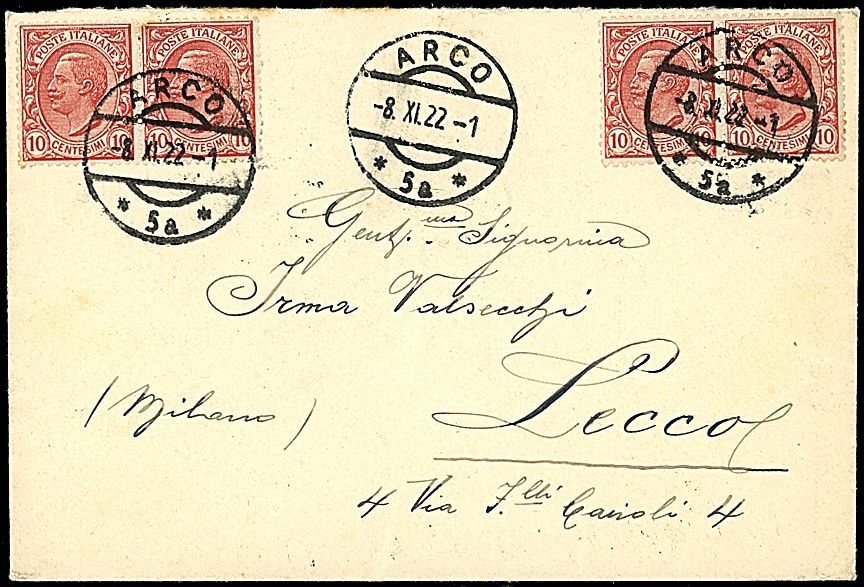 POSTE ITALIANE POSTE ITALIANE
10 CENTESIMI 10 10 CENTESIMI 10
ARCO
-8.XI.22-1
* 5a *
ARCO
-8.XI.22-1
* 5a *
POSTE ITALIANE POSTE ITALIANE
10 CENTESIMI 10 10 CENTESIMI 10
ARCO
-8.XI.22-1
* 5a *
Gent.ma Signorina
Irma Valsecchi
(Milano) Lecco
4 Via F.lli Cairoli 4